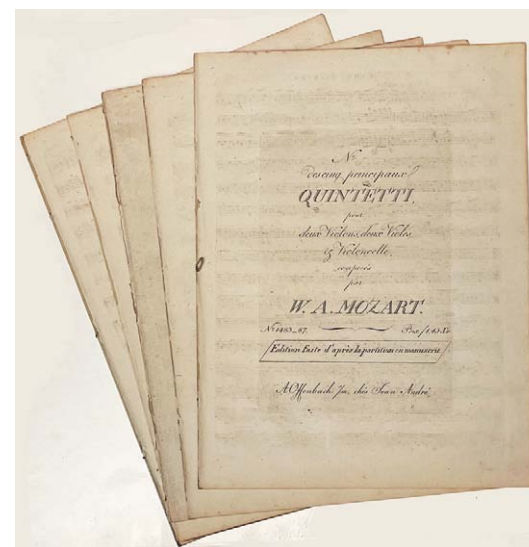 No.
des cinq principaux
QUINTETTI,
pour
deux Violons, deux Violes
& Violoncelle,
composés
par
W. A. MOZART.
No. 1483_87. Prix f
Edition faite d'après la partition en manuscrit
A Offenbach s/m, chés Jean André.